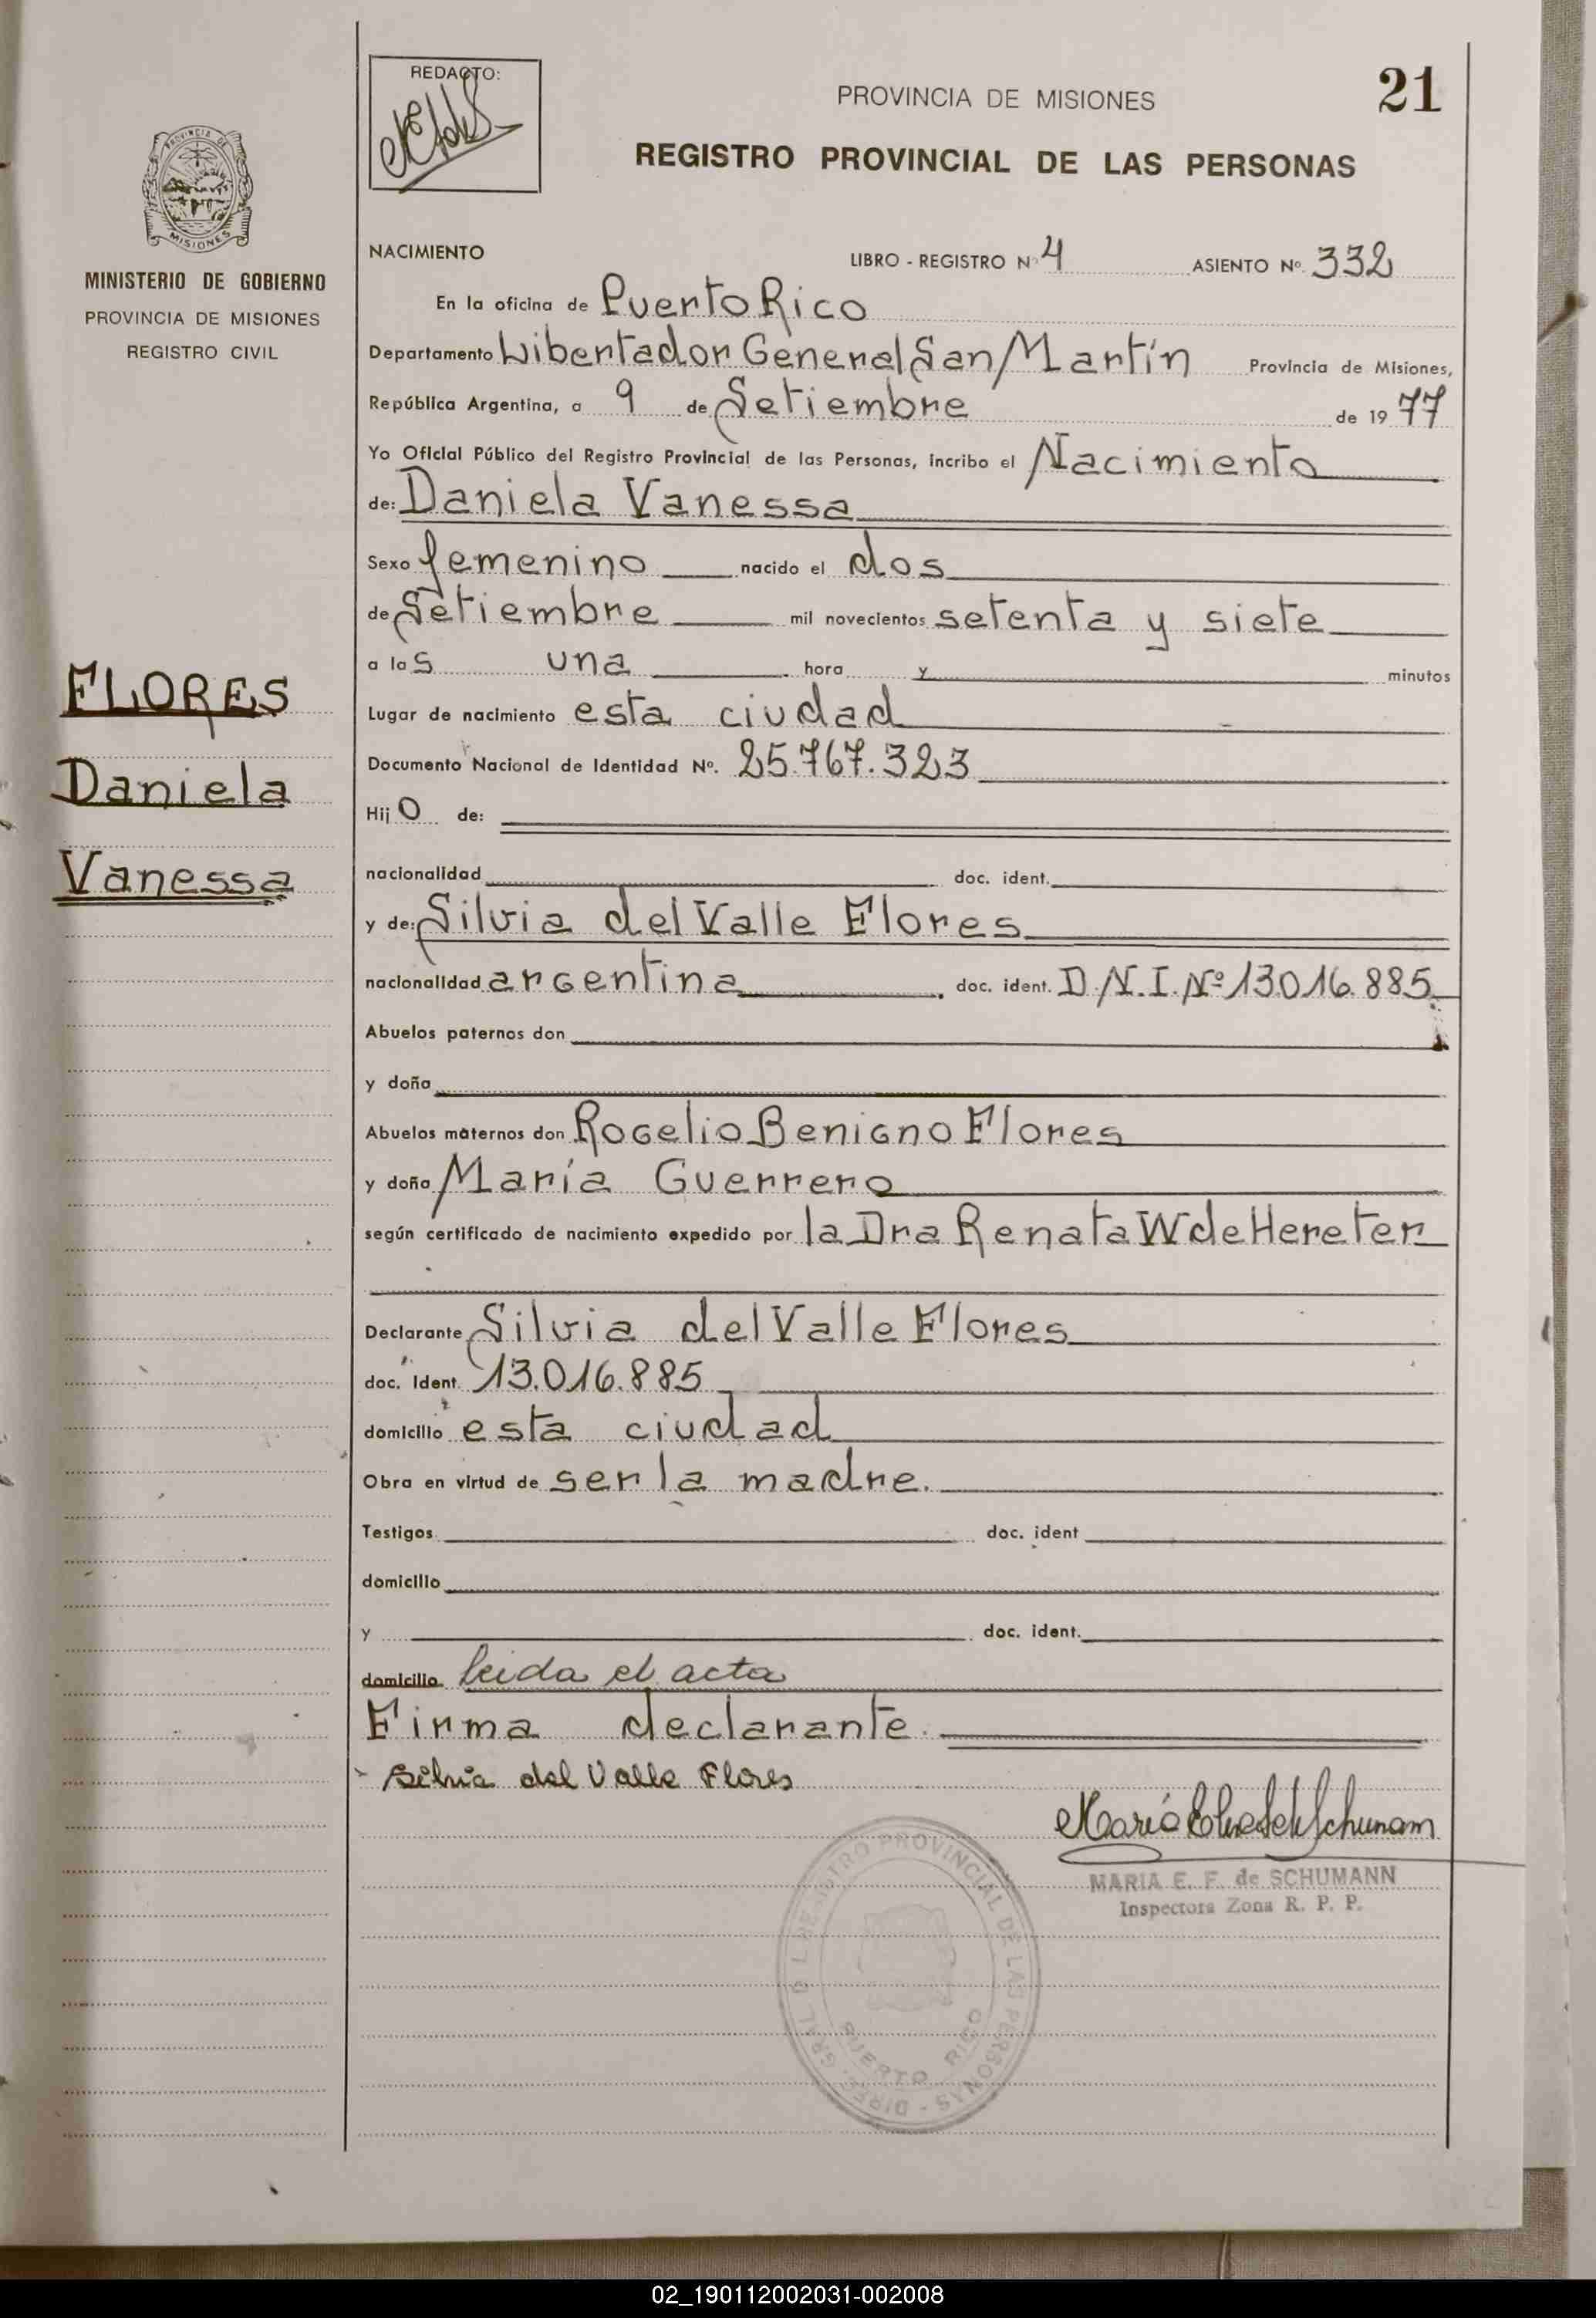 REDACTO:
PROVINCIA DE MISIONES
21
REGISTRO PROVINCIAL DE LAS PERSONAS
PROVINCIA DE
MISIONES
MINISTERIO DE GOBIERNO
PROVINCIA DE MISIONES
REGISTRO CIVIL
FLORES
Daniela
Vanessa
NACIMIENTO LIBRO - REGISTRO Nº 4 ASIENTO Nº 332
En la oficina de Puerto Rico
Departamento Libertador General San Martín Provincia de Misiones,
República Argentina, a 9 de Setiembre de 1977
Yo Oficial Público del Registro Provincial de las Personas, incribo el Nacimiento
de: Daniela Vanessa
Sexo femenino nacido el dos
de Setiembre mil novecientos setenta y siete
a las una hora y minutos
Lugar de nacimiento esta ciudad
Documento Nacional de Identidad Nº. 25.767.323
Hijo de:
nacionalidad doc. ident.
y de: Silvia del Valle Flores
nacionalidad argentina doc. ident. D.N.I. Nº 13.016.885
Abuelos paternos don
y doña
Abuelos maternos don Rogelio Benigno Flores
y doña María Guerrero
según certificado de nacimiento expedido por la Dra Renata W de Hereter
Declarante Silvia del Valle Flores
doc. ident. 13.016.885
domicilio esta ciudad
Obra en virtud de ser la madre.
Testigos doc. ident
domicilio
y doc. ident.
domicilio leida el acta
Firma declarante.
Silvia del Valle Flores
MARIA E. F. de SCHUMANN
Inspectora Zona R. P. P.
DIREC. GRAL. D L REGISTRO PROVINCIAL DE LAS PERSONAS -
PUERTO RICO
02_190112002031-002008